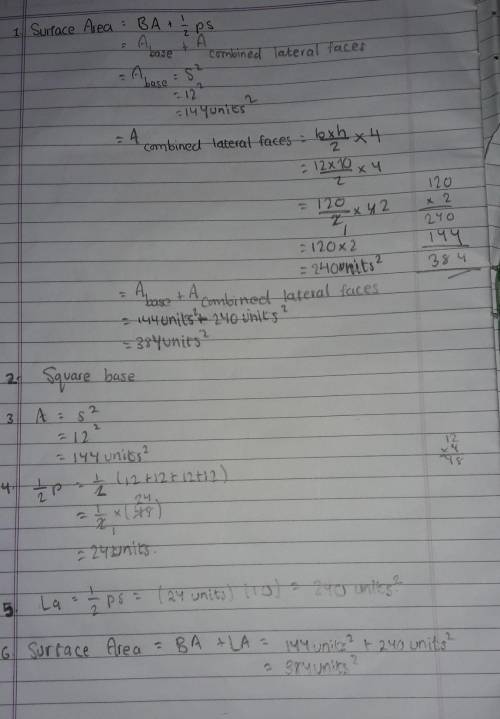 1. Surface Area = BA + 1/2 ps
= A base + A combined lateral faces
= A base = s²
= 12²
= 144 units²
= A combined lateral faces = bxh/2 x 4
= 12 x 10/2 x 4
= 120/2 x 4 2
1
= 120 x 2
= 240 units²
120
x 2
240
144
384
= A base + A combined lateral faces
= 144 units² + 240 units²
= 384 units²
2. Square base
3. A = s²
= 12²
= 144 units²
12
x 4
48
4. 1/2 p = 1/2 (12+12+12+12)
= 1/2 x (48) 24
1
= 24 units.
5. La = 1/2 ps = (24 units) (10) = 240 units²
6. Surface Area = BA + LA = 144 units² + 240 units²
= 384 units²